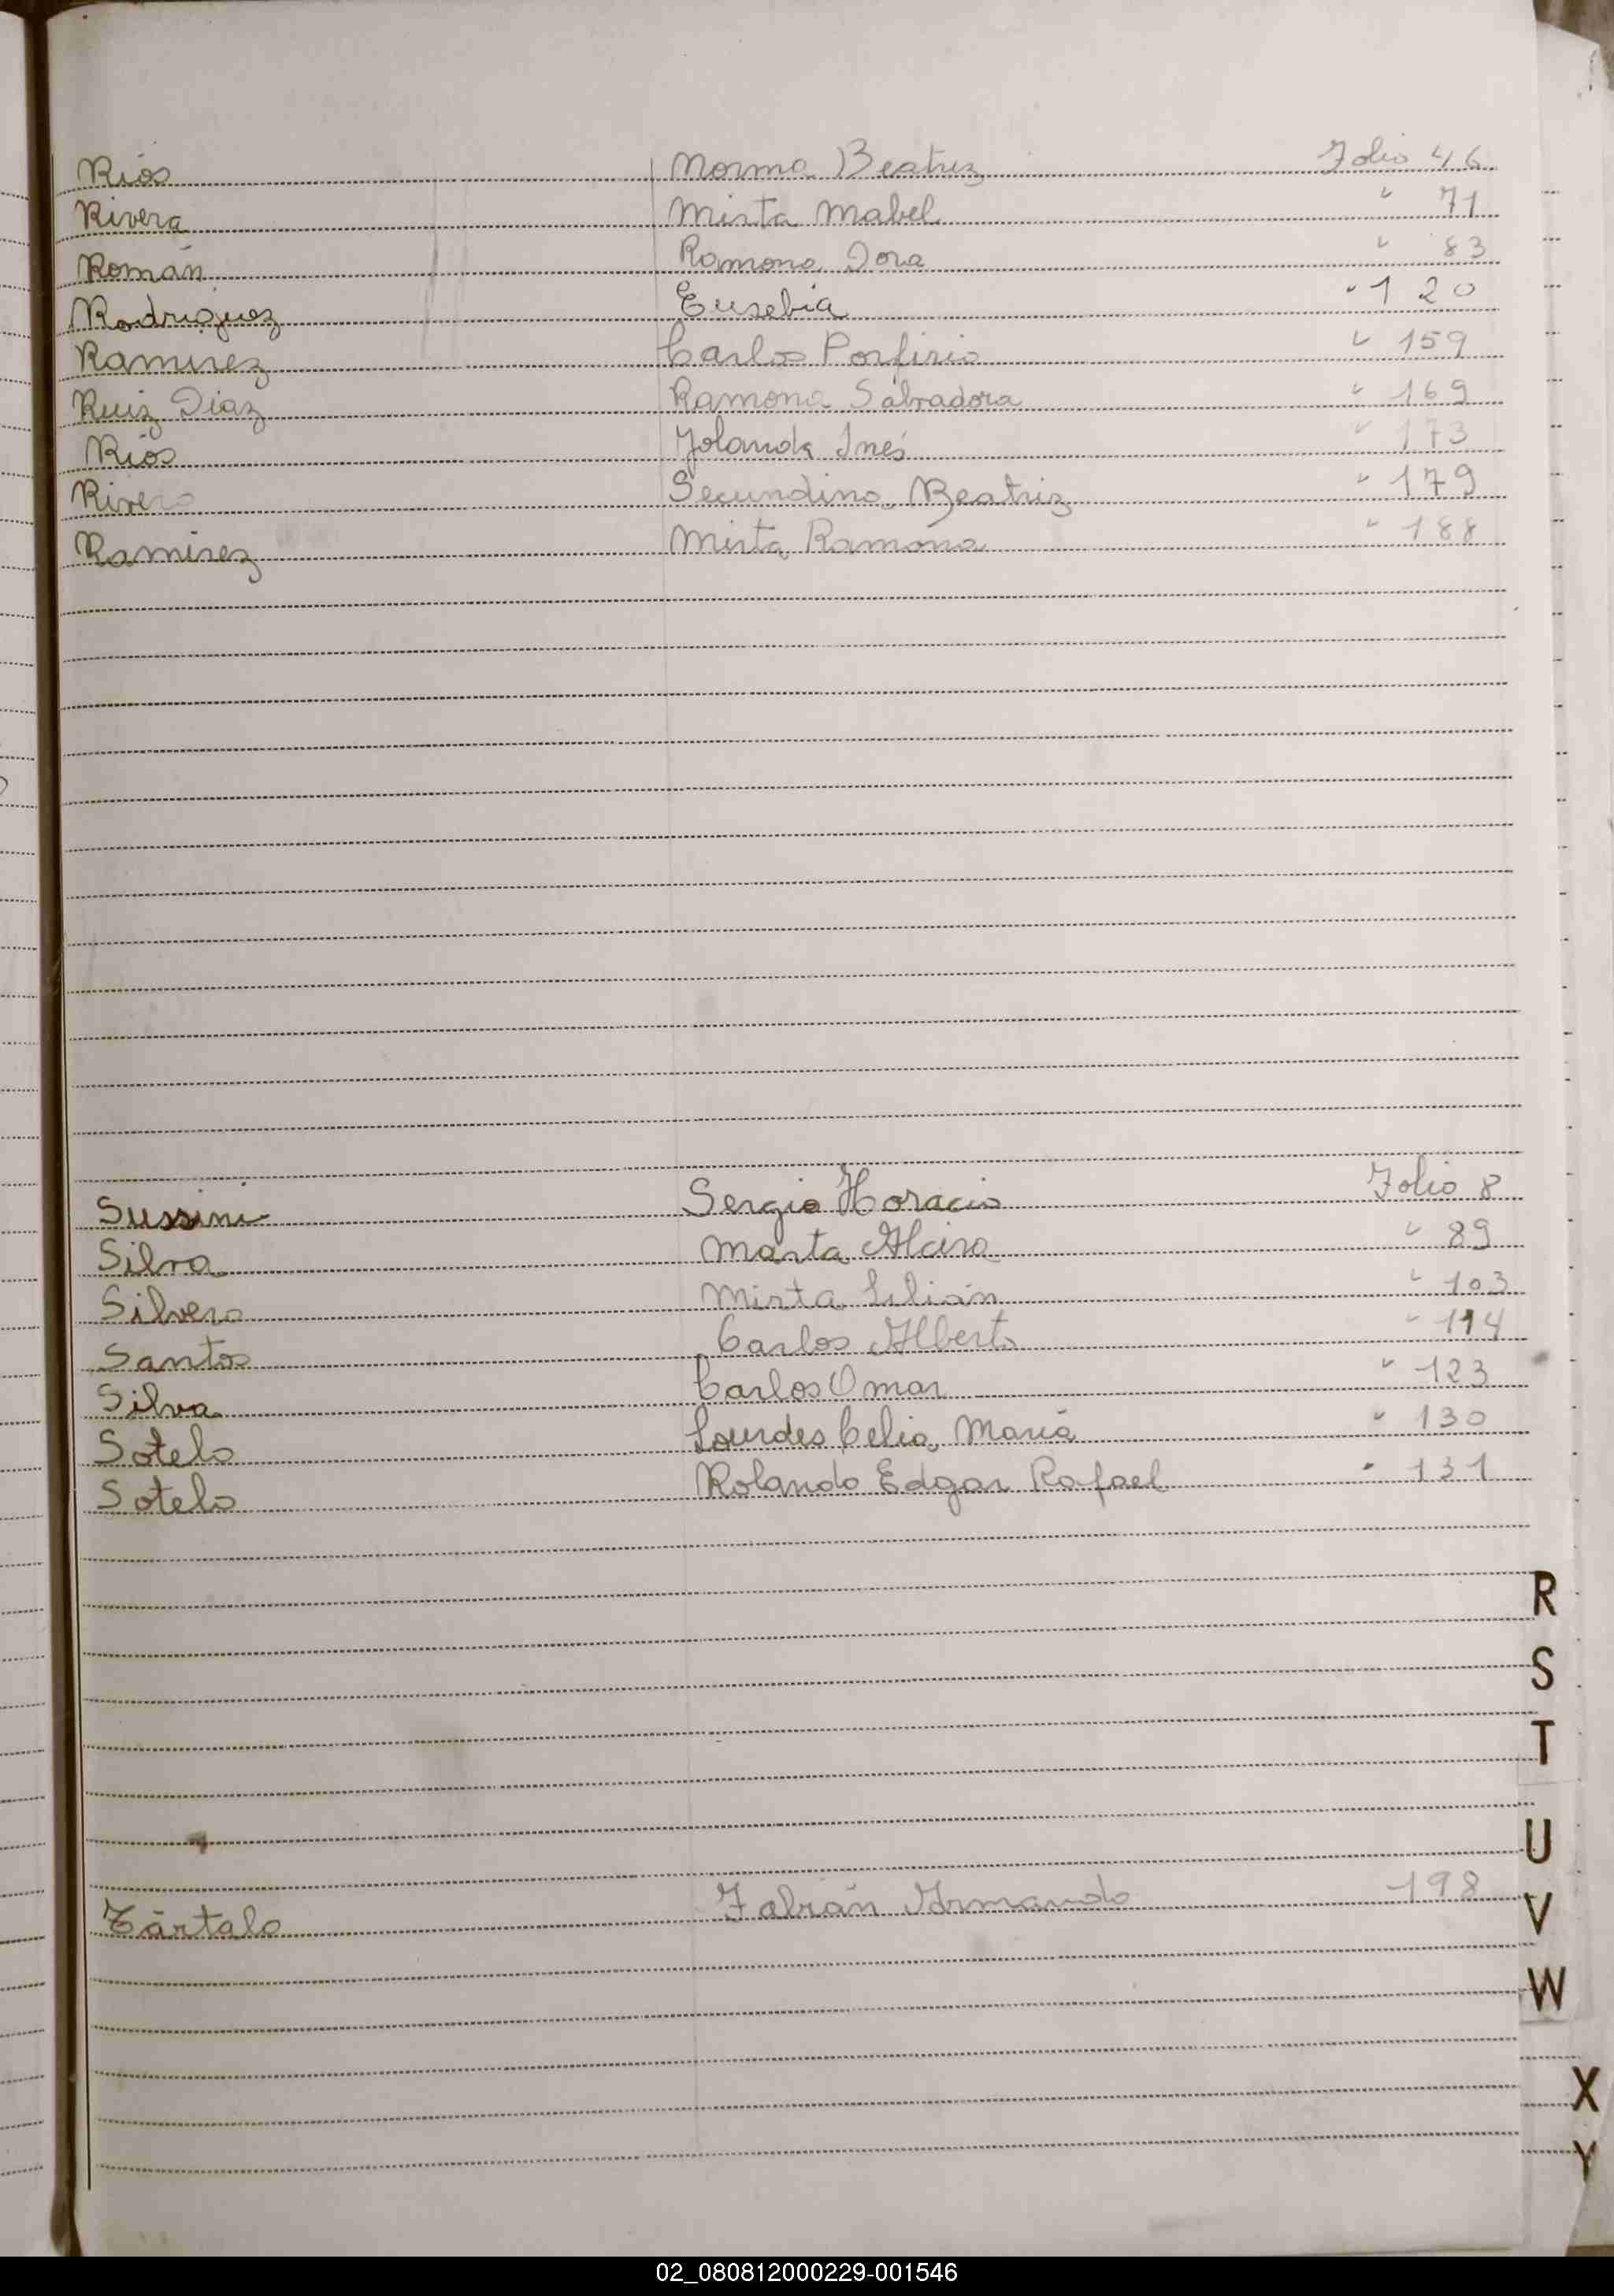 Ríos Norma Beatriz Folio 46
Rivera Mirta Mabel " 71
Román Ramona Dora " 83
Rodriguez Eusebia " 120
Ramirez Carlos Porfirio " 159
Ruiz Diaz Ramona Salvadora " 169
Ríos Yolanda Inés " 173
Rivero Secundina Beatriz " 179
Ramirez Mirta Ramona " 188
Sussini Sergio Horacio Folio 8
Silva Marta Alcira " 89
Silvero Mirta Lilián " 103
Santos Carlos Alberto " 114
Silva Carlos Omar " 123
Sotelo Lourdes Celia María " 130
Sotelo Rolando Edgar Rafael " 131
R
S
T
U
Tártalo Fabián Armando 198
V
W
X
Y
02_080812000229-001546